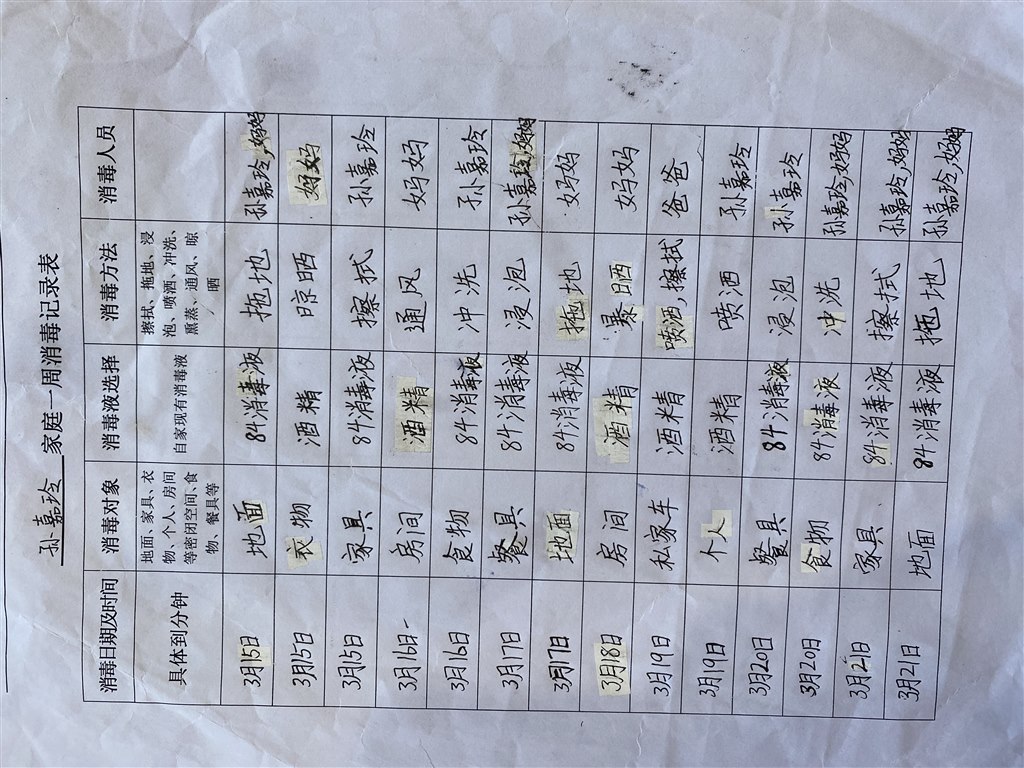 孙嘉玲 家庭一周消毒记录表
消毒日期及时间 消毒对象 消毒液选择 消毒方法 消毒人员
具体到分钟 地面、家具、衣物、个人、房间等密闭空间、食物、餐具等 自家现有消毒液 擦拭、拖地、浸泡、喷洒、冲洗、熏蒸、通风、晾晒
3月15日 地面 84消毒液 拖地 孙嘉玲,妈妈
3月15日 衣物 酒精 晾晒 妈妈
3月15日 家具 84消毒液 擦拭 孙嘉玲
3月16日 房间 酒精 通风 妈妈
3月16日 食物 84消毒液 冲洗 孙嘉玲
3月17日 餐具 84消毒液 浸泡 孙嘉玲,妈妈
3月17日 地面 84消毒液 拖地 妈妈
3月18日 房间 酒精 暴晒 妈妈
3月19日 私家车 酒精 喷洒,擦拭 爸爸
3月19日 个人 酒精 喷洒 孙嘉玲
3月20日 餐具 84消毒液 浸泡 孙嘉玲
3月20日 食物 84消毒液 冲洗 孙嘉玲,妈妈
3月21日 家具 84消毒液 擦拭 孙嘉玲,妈妈
3月21日 地面 84消毒液 拖地 孙嘉玲,妈妈